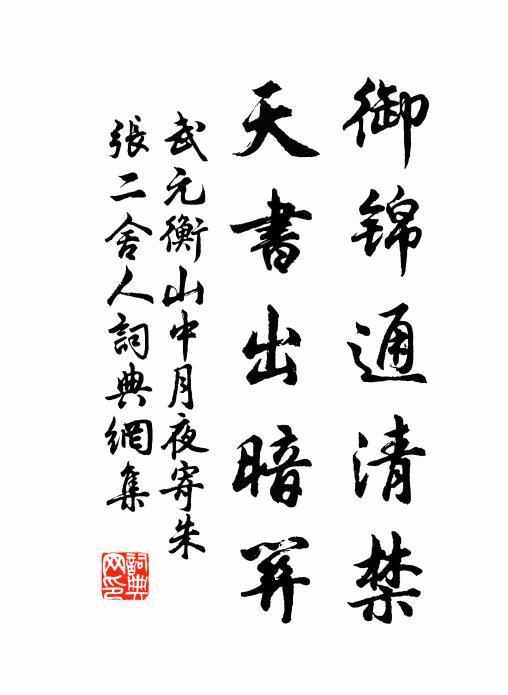 御錦通清禁
天書出暗關
武元衡山中月夜寄朱
張二舍人詞典網集
詞典
网印